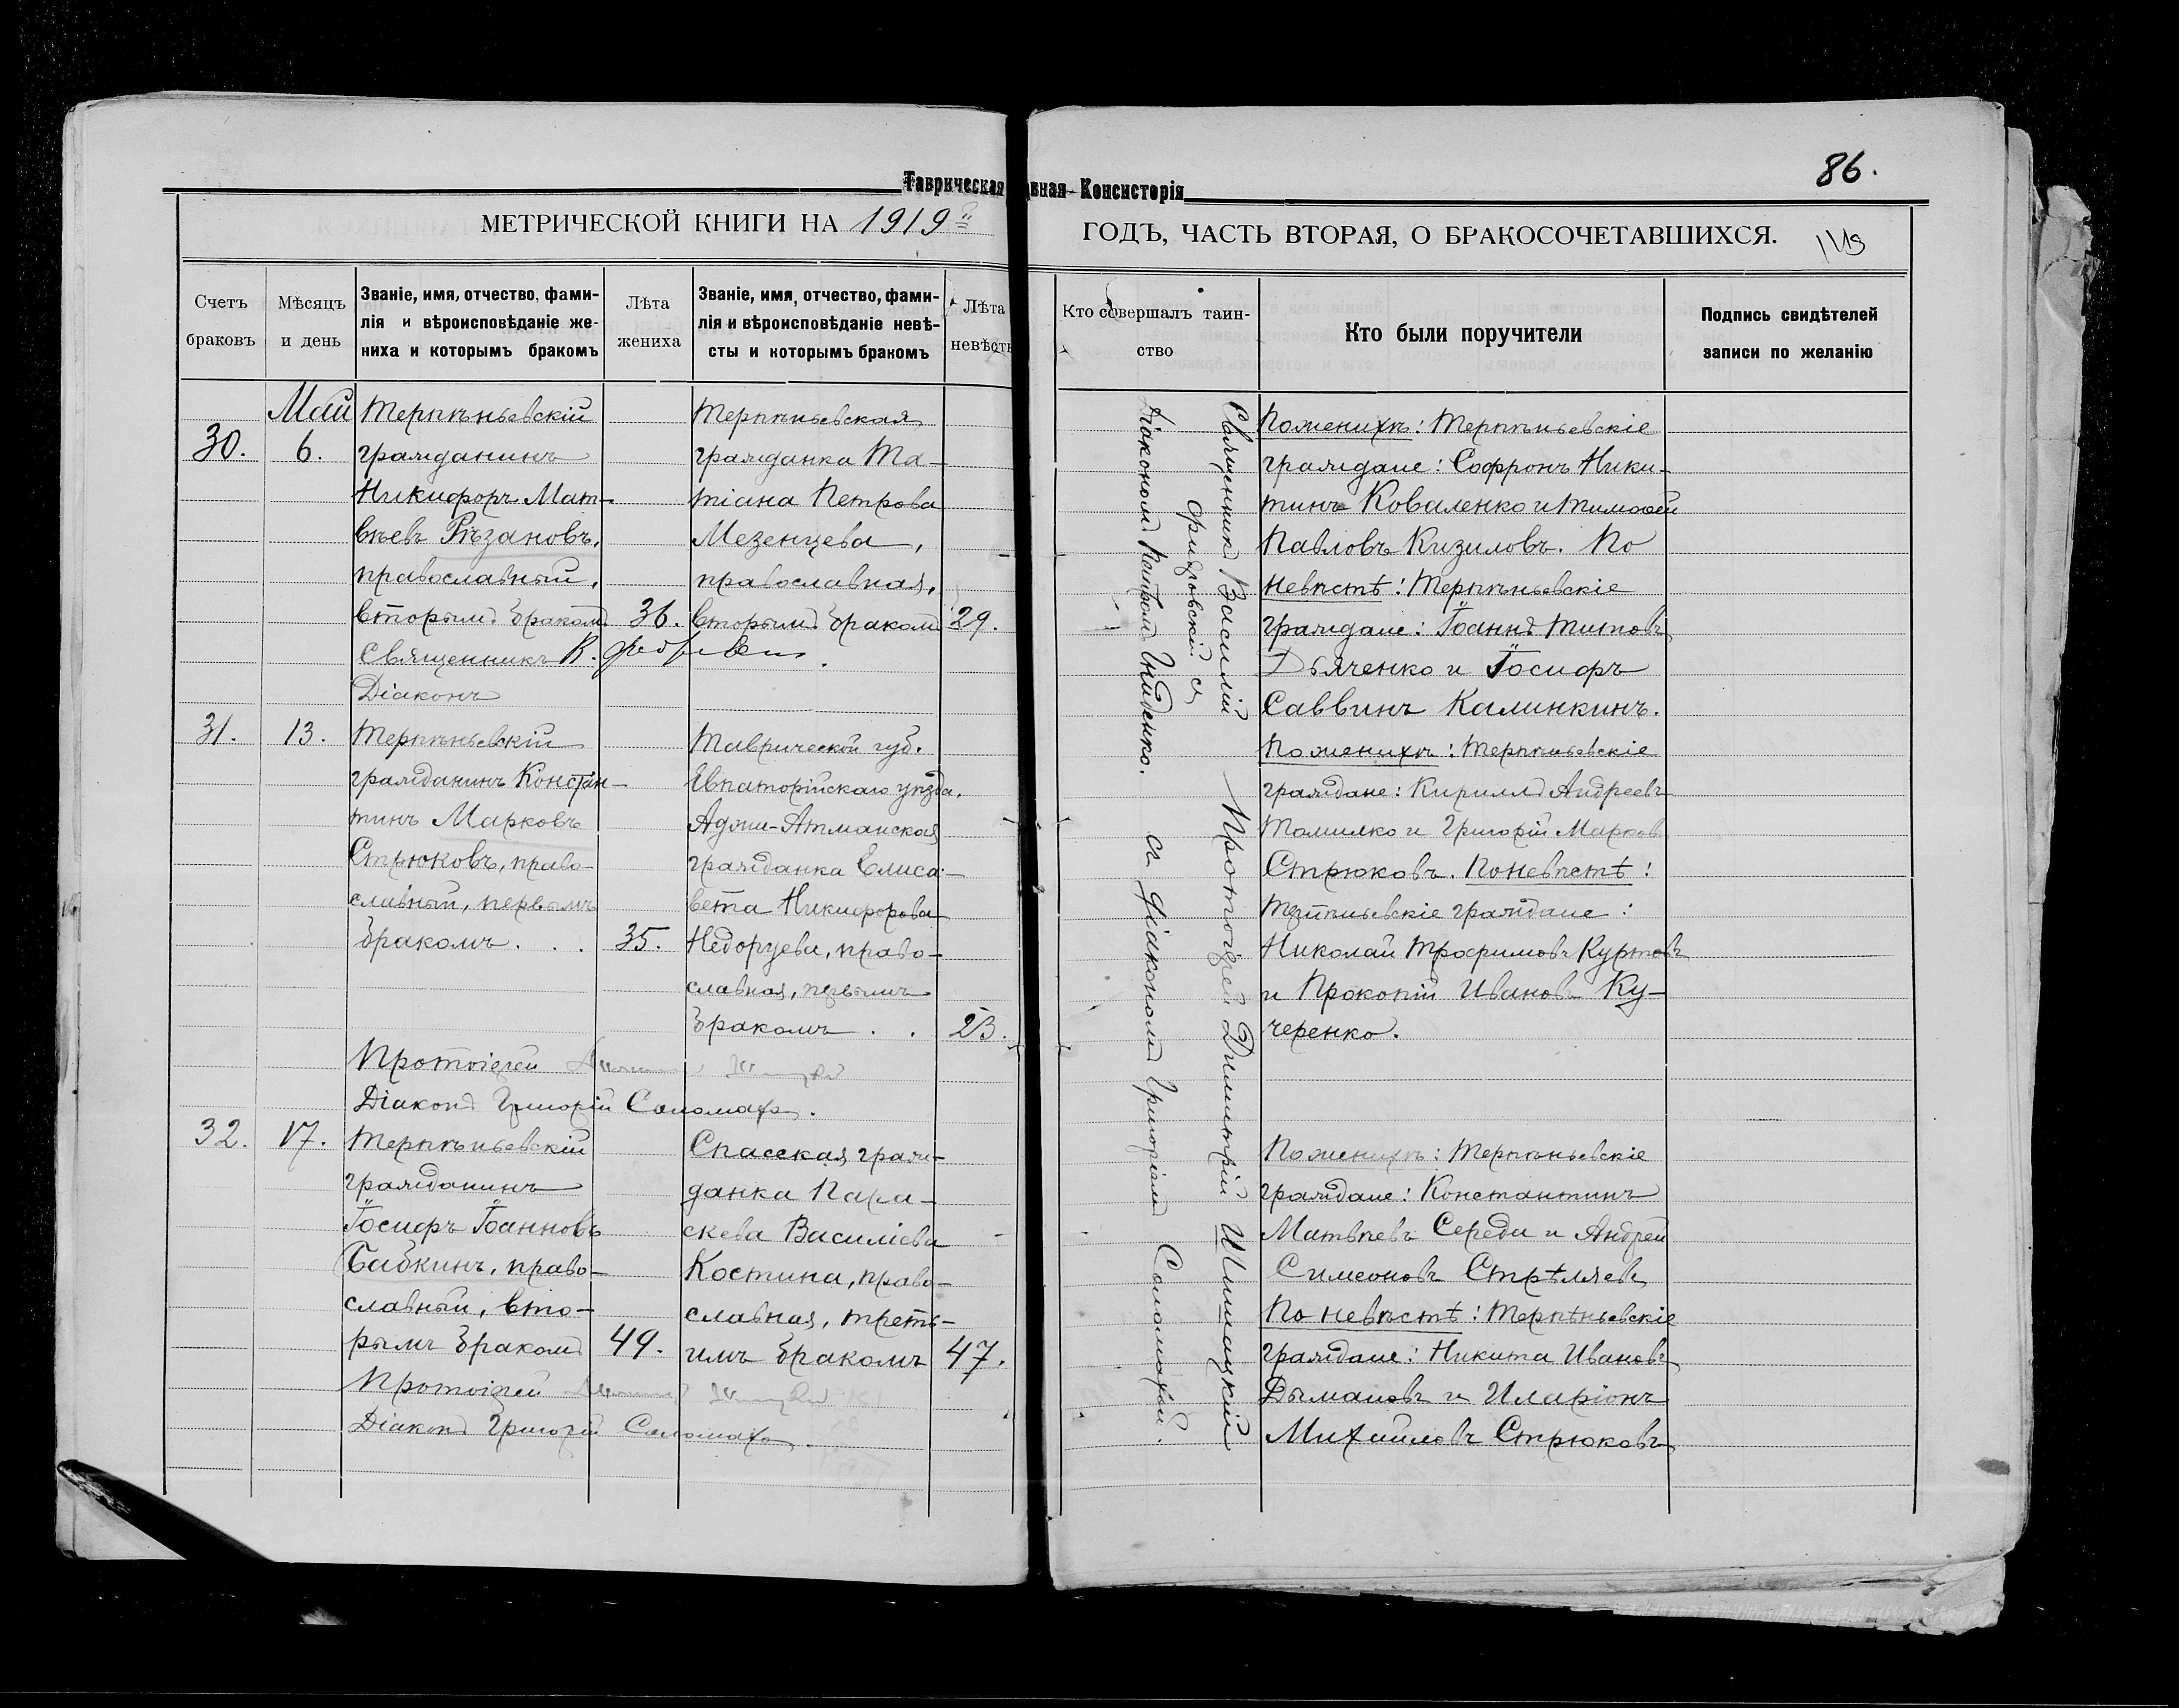 Таврическая
вная Консисторія
86.
МЕТРИЧЕСКОЙ КНИГИ НА 1919й
ГОДЪ, ЧАСТЬ ВТОРАЯ, О БРАКОСОЧЕТАВШИХСЯ.
Счетъ
браковъ
Мѣсяцъ
и день
Званіе, имя, отчество, фами-
лія и вѣроисповѣданіе же-
ниха и которымъ бракомъ
Лѣта
жениха
Званіе, имя, отчество, фами-
лія и вѣроисповѣданіе невѣ-
сты и которымъ бракомъ
Лѣта
невѣсты
Кто совершалъ таин-
ство
Кто были поручители
Подпись свидѣтелей
записи по желанію
Май
30.
6.
Терпѣньевскій
гражданинъ
Никифоръ Мат-
вѣевъ Рѣзановъ,
православный,
вторымъ бракомъ
36.
Терпѣньевская
гражданка Та-
тіана Петрова
Мезенцева,
православная,
вторымъ бракомъ
29.
Священникъ В.
Діаконъ
Священникъ Василій
съ
Діакономъ
По женихѣ: Терпѣньевскіе
граждане: Софронъ Ники-
тинъ Коваленко и Тимоѳей
Павловъ Кизиловъ. По
невѣстѣ: Терпѣньевскіе
граждане: Іоаннъ Титовъ
Дьяченко и Іосифъ
Саввинъ Калинкинъ.
31.
13.
Терпѣньевскій
гражданинъ Констан-
тинъ Марковъ
Стрюковъ, право-
славный, первымъ
бракомъ . . .
35.
Таврической губ.
Евпаторійскаго уѣзда,
Аджи-Атманская
гражданка Елиса-
вета Никифорова
Недоруева, право-
славная, первымъ
бракомъ . .
23.
Протоіерей
Діаконъ Григорій Соломаха.
Протоіерей Димитрій Шишацкій
съ діакономъ Григоріемъ Соломахой.
По женихѣ: Терпѣньевскіе
граждане: Кириллъ Андреевъ
Томилко и Григорій Марковъ
Стрюковъ. По невѣстѣ:
Терпѣньевскіе граждане:
Николай Трофимовъ Куртовъ
и Прокопій Ивановъ Ку-
черенко.
32.
17.
Терпѣньевскій
гражданинъ
Іосифъ Іоанновъ
Бабкинъ, право-
славный, вто-
рымъ бракомъ
49.
Спасская граж-
данка Пара-
скева Василіева
Костина, право-
славная, треть-
имъ бракомъ
47.
Протоіерей
Діаконъ Григорій Соломаха.
По женихѣ: Терпѣньевскіе
граждане: Константинъ
Матвѣевъ Середа и Андрей
Симеоновъ Стрѣляевъ
По невѣстѣ: Терпѣньевскіе
граждане: Никита Ивановъ
Дымановъ и Иларіонъ
Михайловъ Стрюковъ